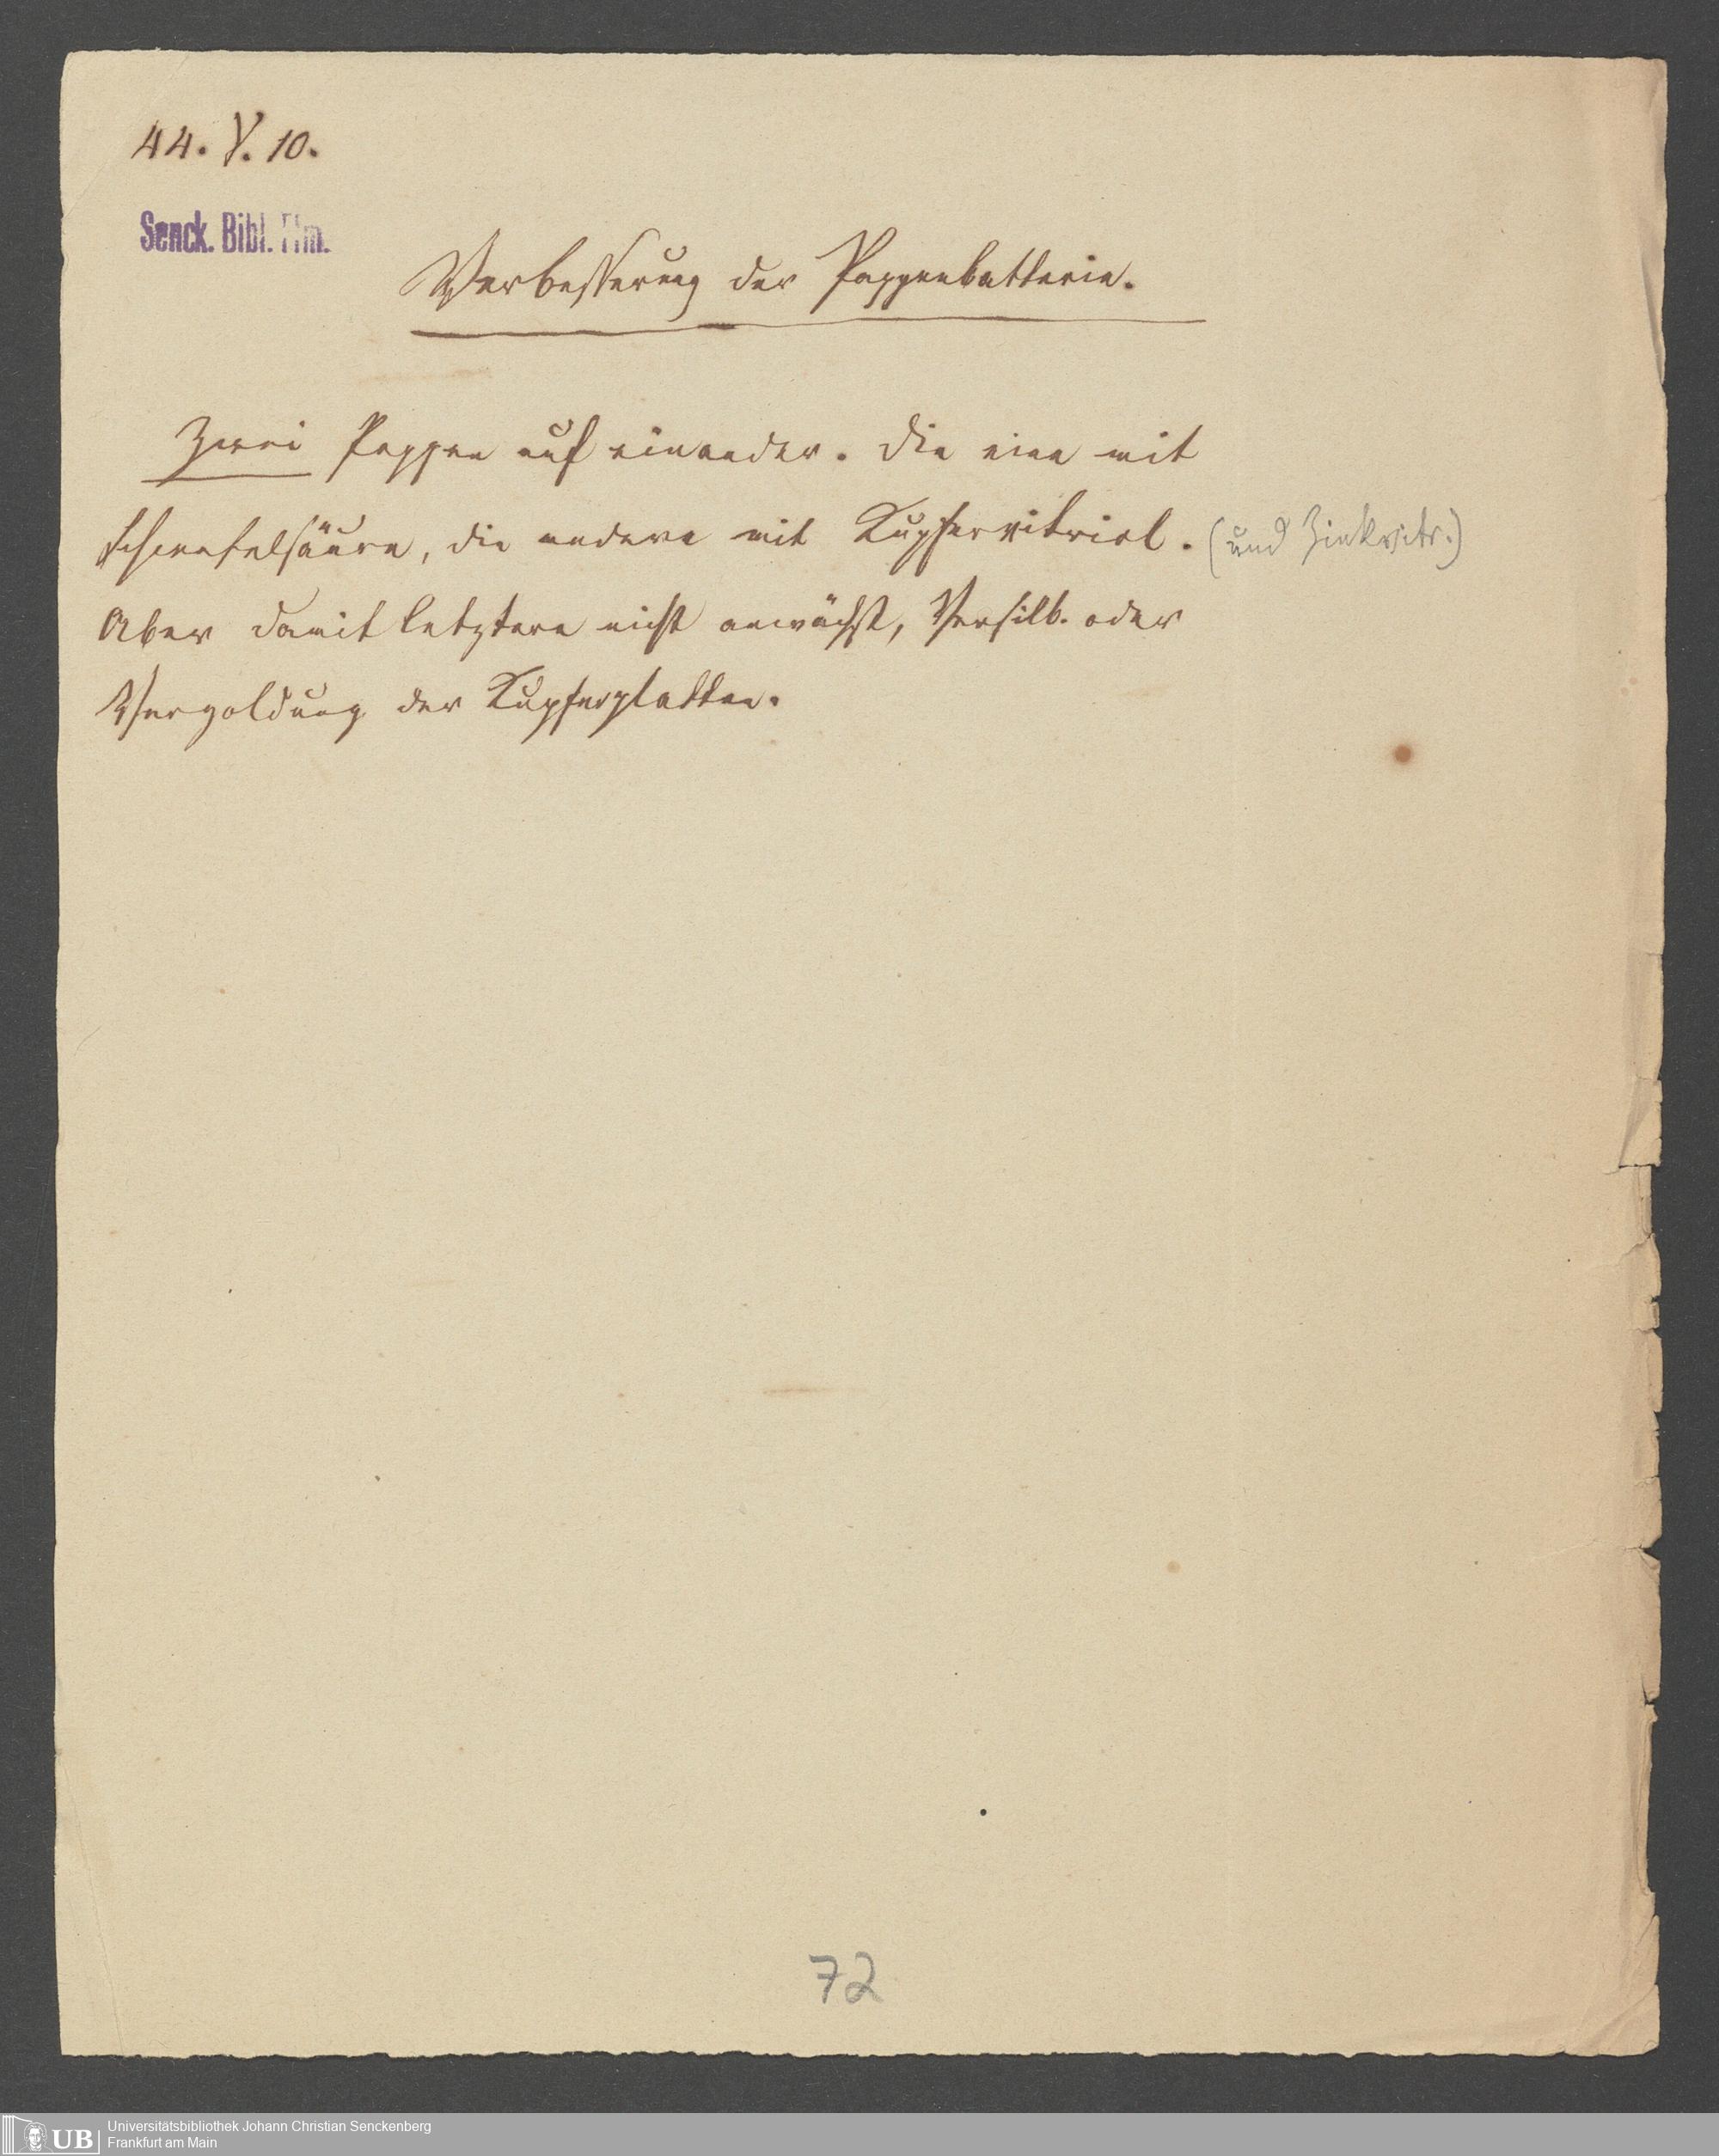 44. V. 10.
Senck. Bibl. Ffm.
Verbesserung der Pappenbatterie.
Zwei Pappen auf einander. Die eine mit
Schwefelsäure, die andere mit Kupfervitriol. (und Zinkvitr.)
Aber damit letztere nicht anwächst, Versilb. oder
Vergoldung der Kupferplatten.
72
UB
Universitätsbibliothek Johann Christian Senckenberg
Frankfurt am Main